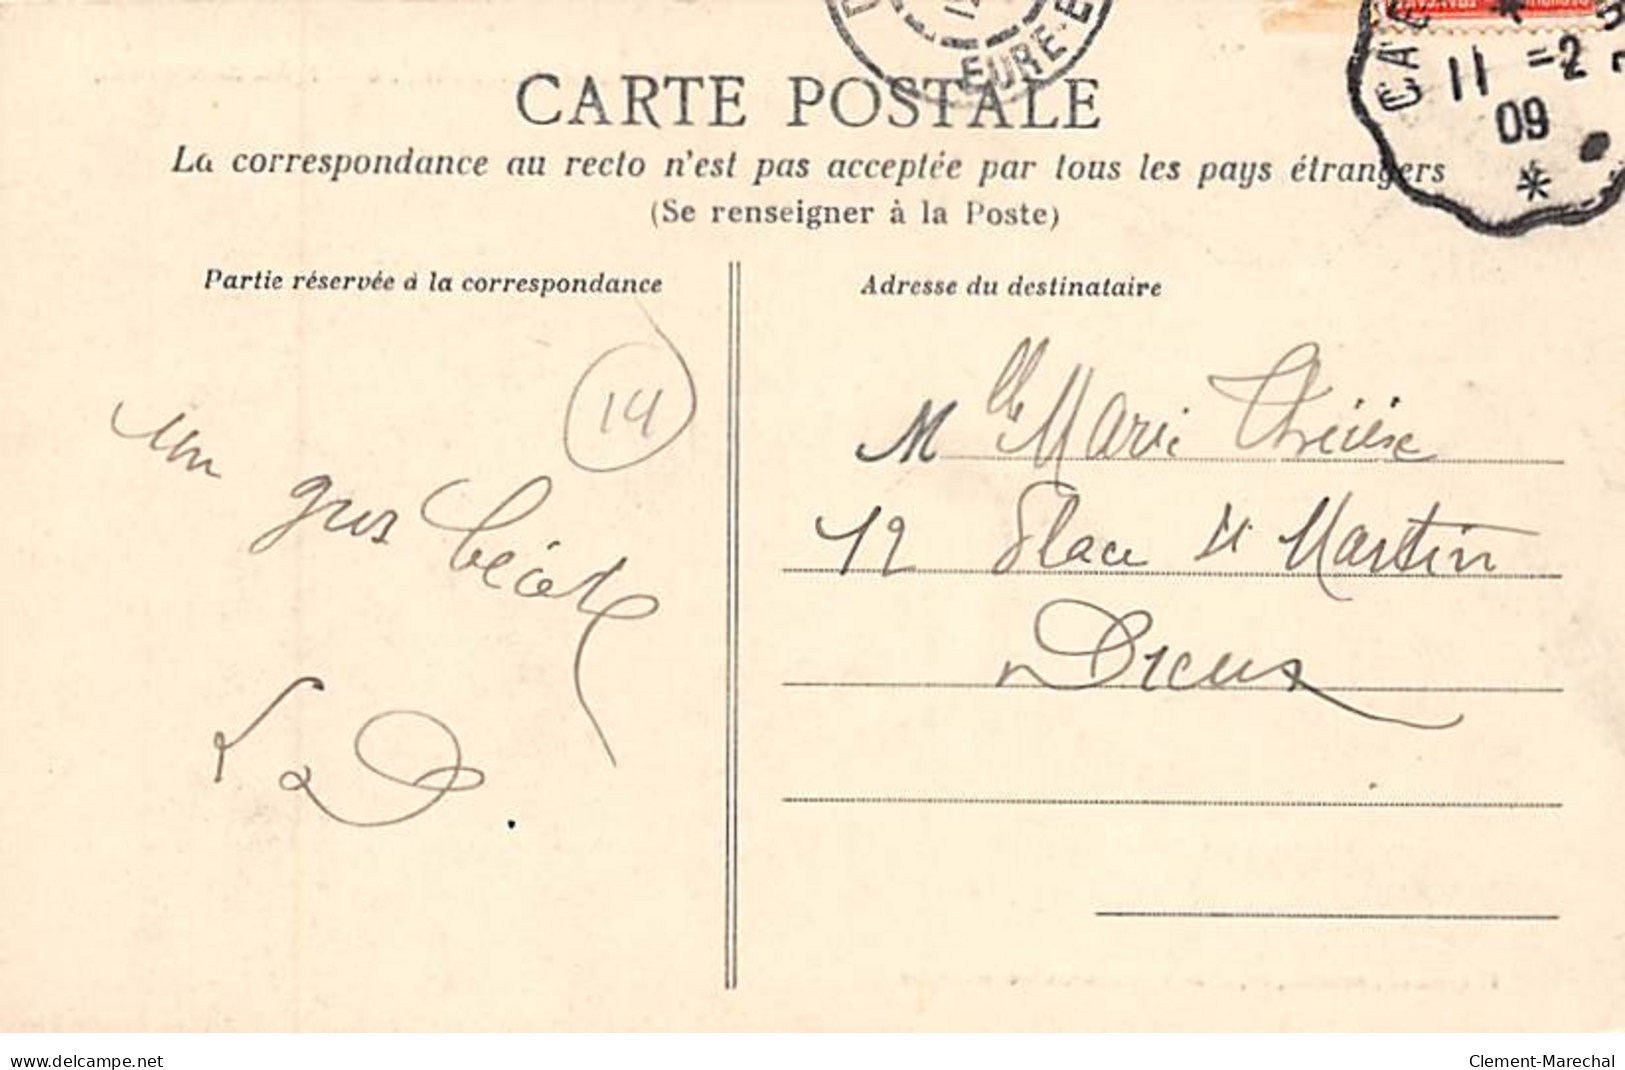 EURE-E
CAE
11 =2
09
CARTE POSTALE
La correspondance au recto n'est pas acceptée par tous les pays étrangers
(Se renseigner à la Poste)
Partie réservée à la correspondance
Adresse du destinataire
14
un gros bécot
L D.
Mlle Marie Thérèse
12 Place St Martin
Dreux
www.delcampe.net
Clement-Marechal